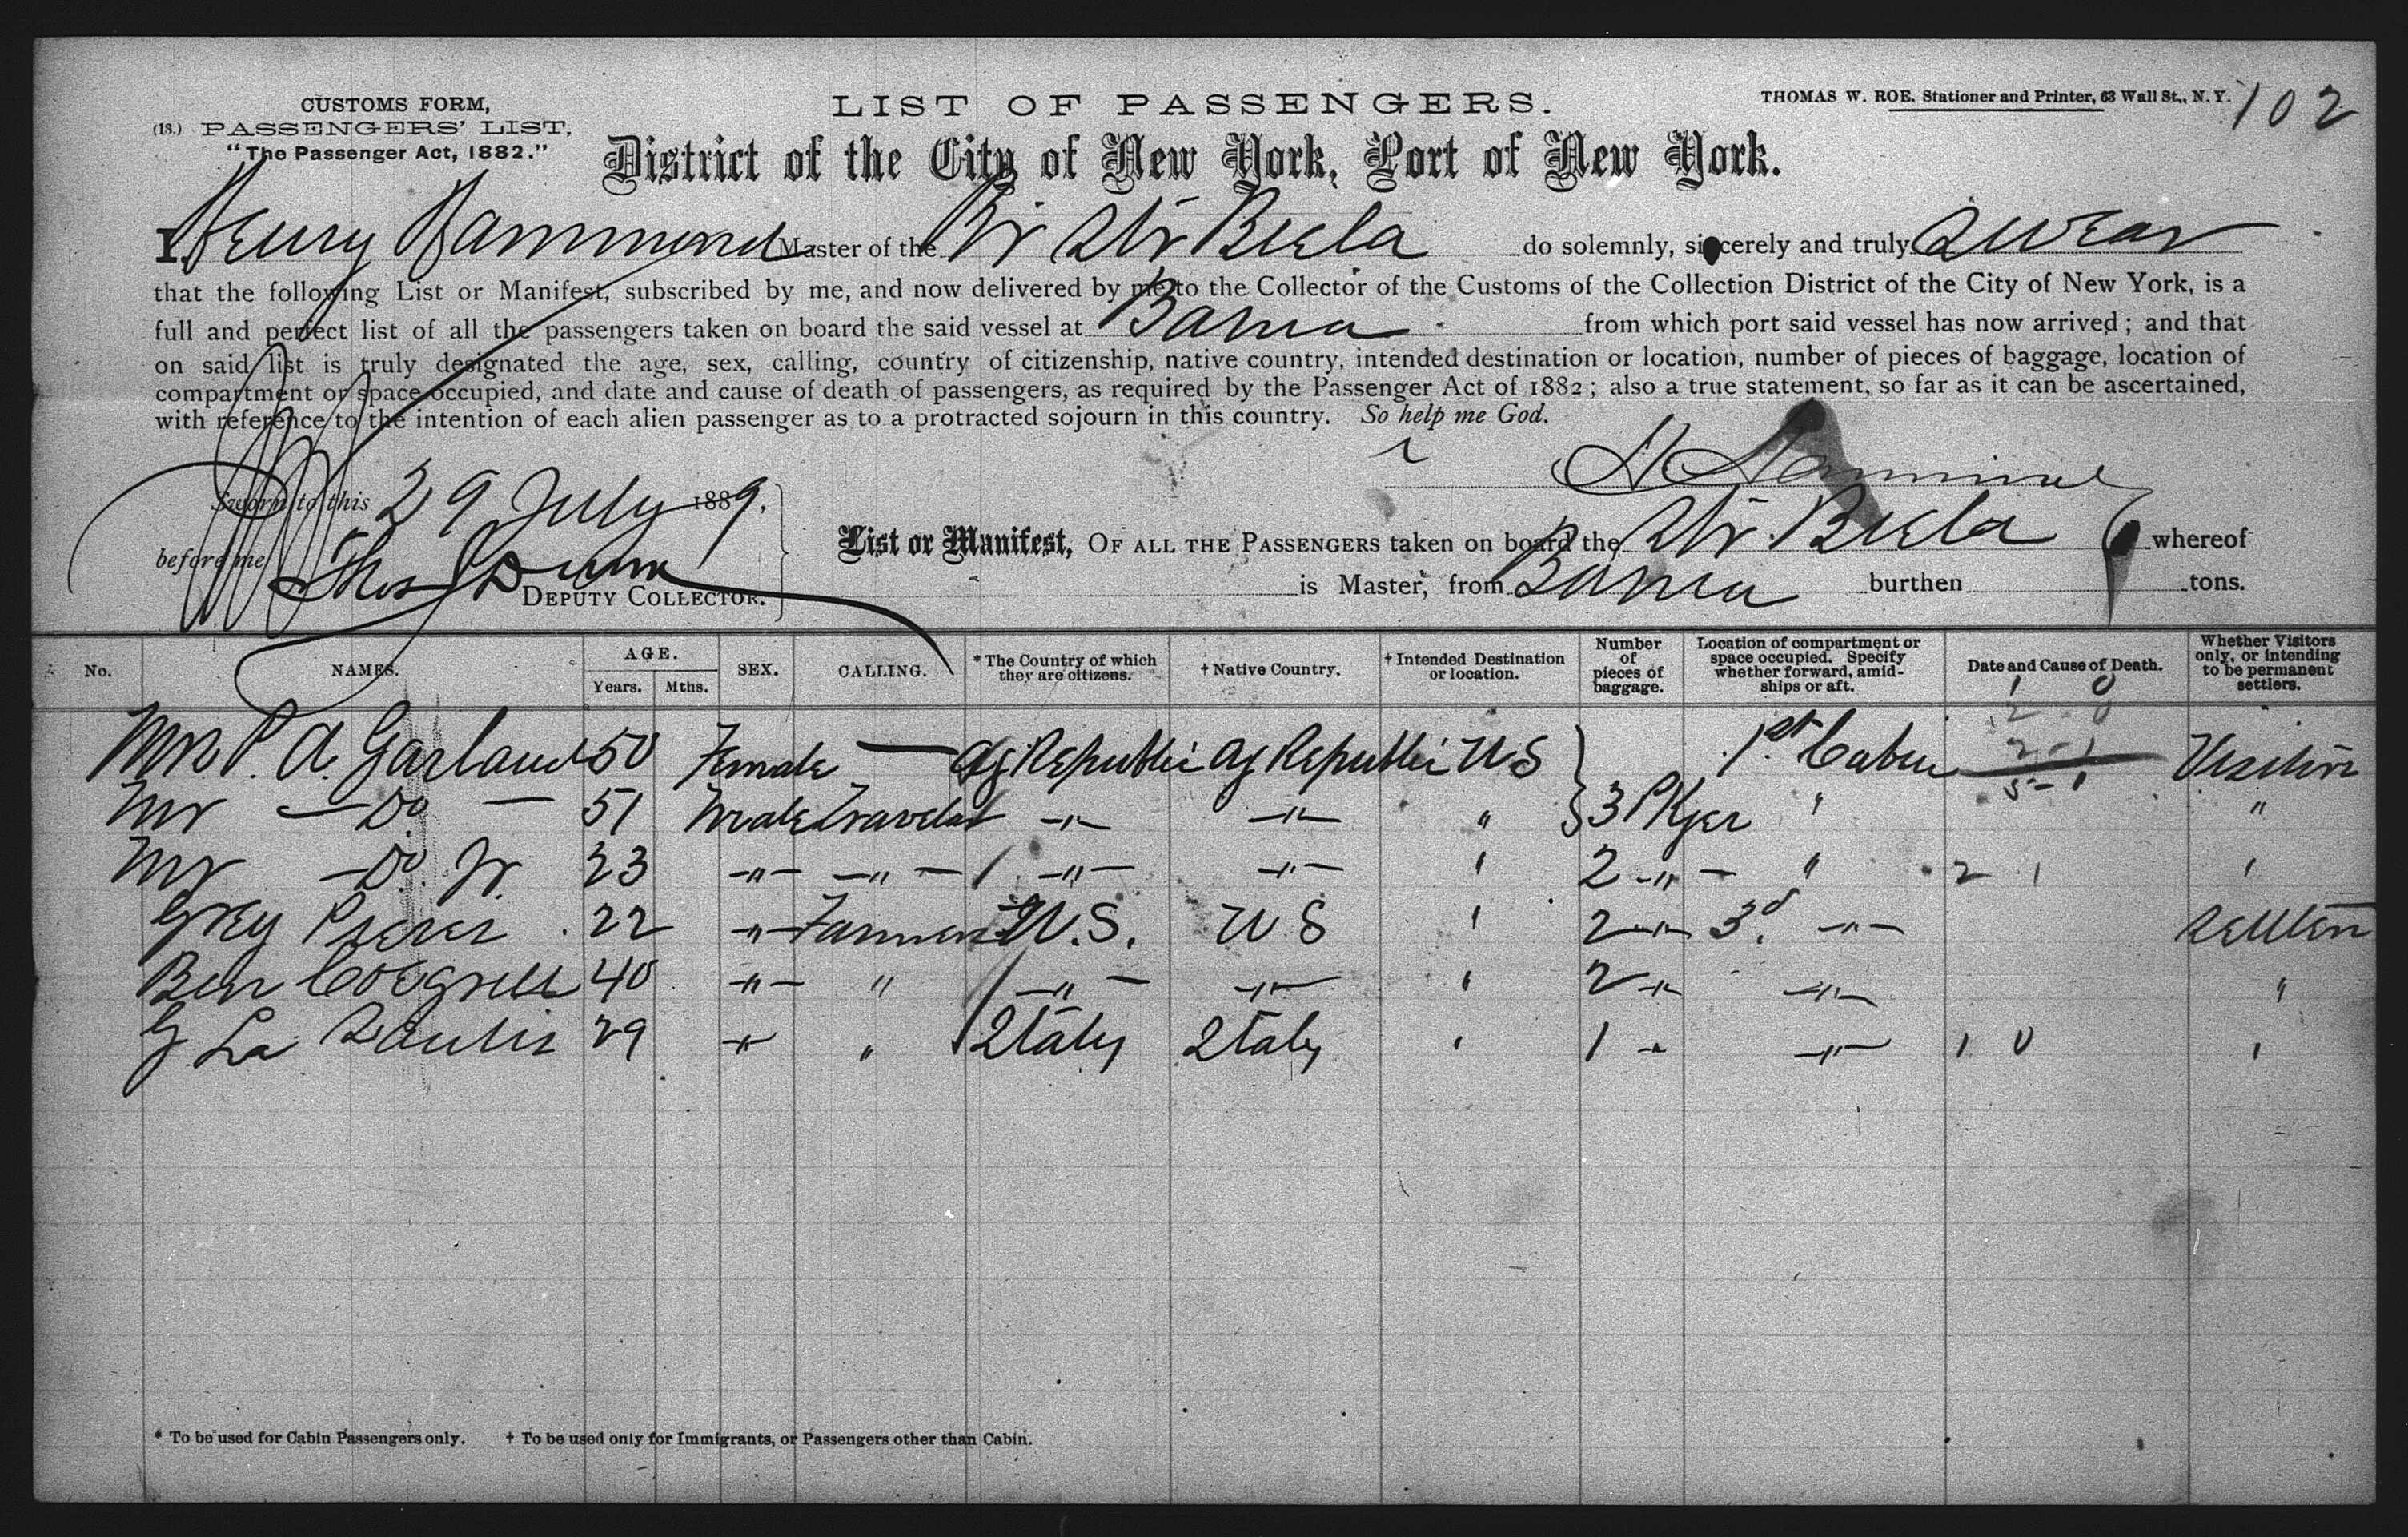 CUSTOMS FORM,
(18.) PASSENGERS' LIST,
"The Passenger Act, 1882."
LIST OF PASSENGERS.
THOMAS W. ROE, Stationer and Printer, 63 Wall St., N. Y.
102
District of the City of New York, Port of New York.
I, Henry Hammond Master of the Br Str Biela do solemnly, sincerely and truly swear
that the following List or Manifest, subscribed by me, and now delivered by me to the Collector of the Customs of the Collection District of the City of New York, is a
full and perfect list of all the passengers taken on board the said vessel at Bahia from which port said vessel has now arrived; and that
on said list is truly designated the age, sex, calling, country of citizenship, native country, intended destination or location, number of pieces of baggage, location of
compartment or space occupied, and date and cause of death of passengers, as required by the Passenger Act of 1882; also a true statement, so far as it can be ascertained,
with reference to the intention of each alien passenger as to a protracted sojourn in this country. So help me God.
H Hammond
Sworn to this 29 July 1889,
before me Thos Dunn
DEPUTY COLLECTOR.
List or Manifest, OF ALL THE PASSENGERS taken on board the Str. Biela whereof
is Master, from Bahia burthen tons.
No. NAMES. AGE. Years. Mths. SEX. CALLING. * The Country of which they are citizens. † Native Country. † Intended Destination or location. Number of pieces of baggage. Location of compartment or space occupied. Specify whether forward, amidships or aft. Date and Cause of Death. Whether Visitors only, or intending to be permanent settlers.
1 0
2 0
2 - 1
5 - 1
Mrs P. A. Garland 50 Female — Ag Republic Ag Republic U S 1st Cabin Visitors
Mr — Do — 51 Male Traveler — " — — " — " 3 Pkges " "
Mr — Do. Jr. 23 — " — — " — — " — — " — ' 2 — " — " 2 1 '
Grey 22 — " — Farmer U.S. U S ' 2 — " — 3d. — " — Settlers
Ben 40 — " — " — " — — " — ' 2 — " — — " — "
G La 29 — " — " Italy Italy ' 1 — " — — " — 1 0 '
* To be used for Cabin Passengers only. † To be used only for Immigrants, or Passengers other than Cabin.